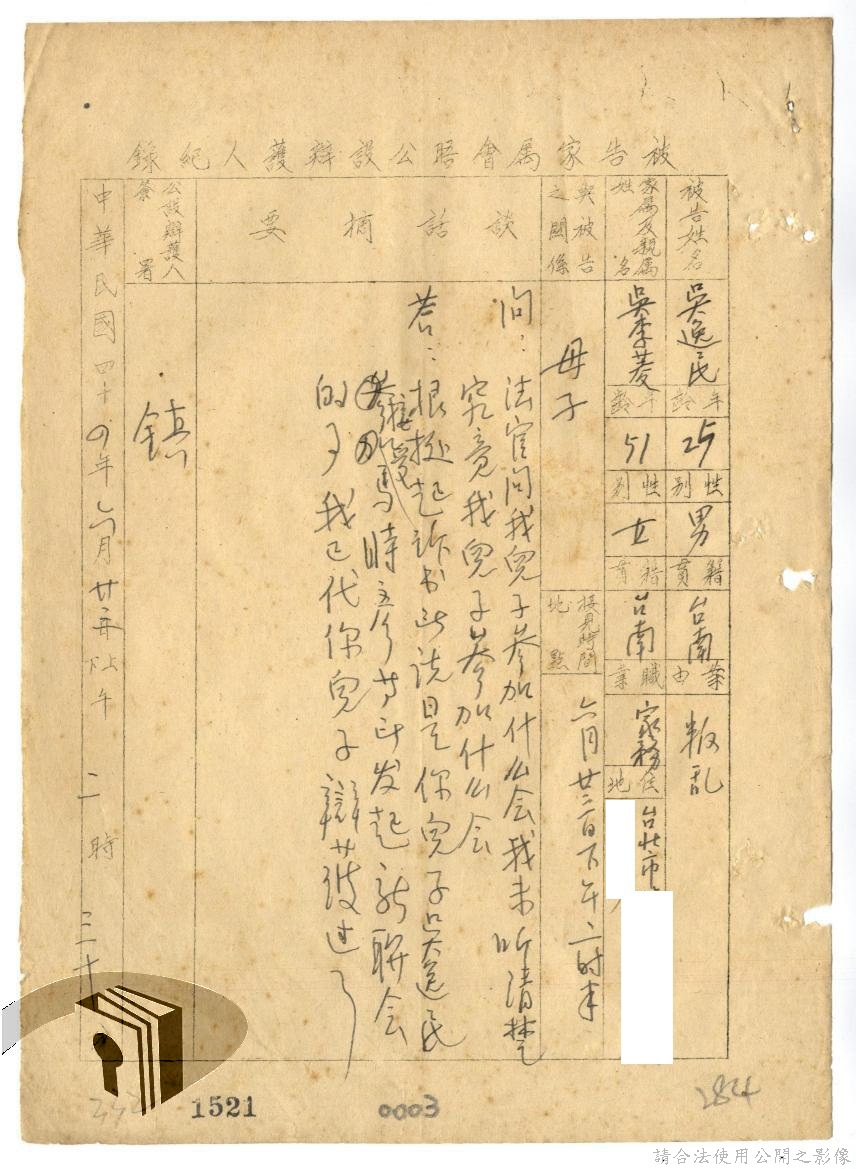 被告家屬會晤公設辯護人紀錄
被告姓名 吳逸民 年齡 25 性別 男 籍貫 台南 案由 叛乱
家屬及親屬姓名 吳李菱 年齡 51 性別 女 籍貫 台南 職業 家務 住地 台北市
與被告之關係 母子 接見時間地點 六月廿三日下午二时半
談話摘要
问:法官问我兒子參加什么会我未听清楚
究竟我兒子參加什么会
答:根据起訴书所说是你兒子吳逸民
接受 時 所发起 联会
的了我已代你兒子辯 过了
公設辯護人簽署 鎮
中華民國四十四年六月廿 午二時三十
1521
0003
284
請合法使用公開之影像